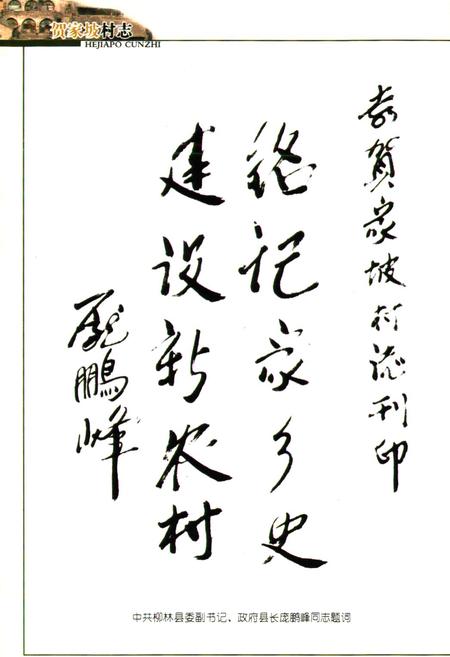 贺家坡村志
HEJIAPO CUNZHI
恭賀家坡村誌刊印
铭记家乡史
建设新农村
龐鵬峰
中共柳林县委副书记、政府县长庞鹏峰同志题词